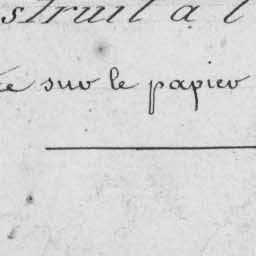 struit a l
sur le papier